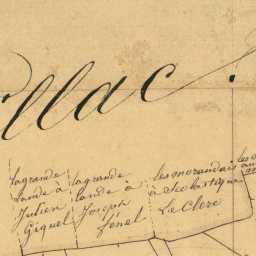 llac.
lagrande
lande à
Julien
Giquel
lagrande
lande à
Joseph
fénel
les morandais
à Scholastique
Le Clerc
les